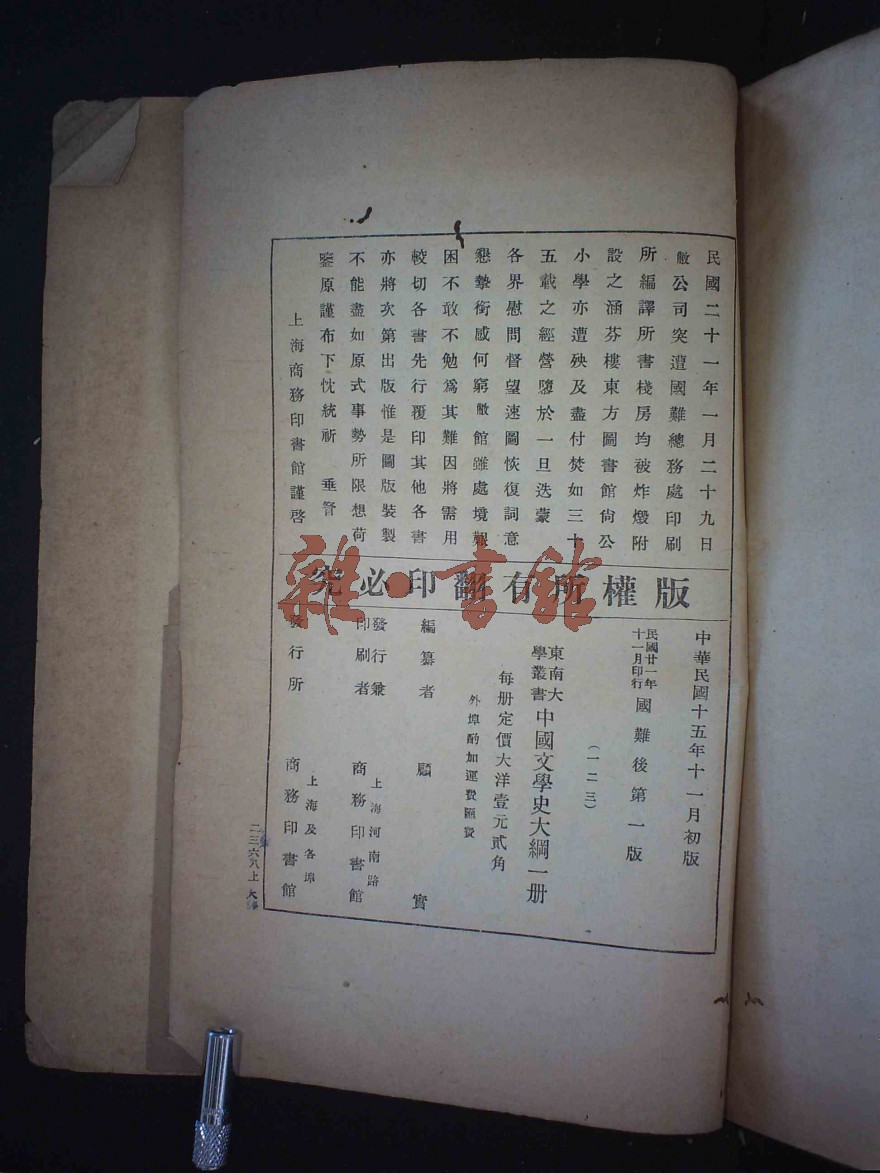 民國二十一年一月二十九日
敝公司突遭國難總務處印刷
所編譯所書棧房均被炸燬附
設之涵芬樓東方圖書館尙公
小學亦遭殃及盡付焚如三十
五載之經營隳於一旦迭蒙
各界慰問督望速圖恢復詞意
懇摯銜感何窮敝館雖處境艱
困不敢不勉爲其難因將需用
較切各書先行覆印其他各書
亦將次第出版惟是圖版裝製
不能盡如原式事勢所限想荷
鑒原謹布下忱統祈 垂詧
上海商務印書館謹啓
版權所有翻印必究
中華民國十五年十一月初版
民國廿一年
十一月印行 國難後第一版
(一二三)
東南大
學叢書 中國文學史大綱一册
每册定價大洋壹元貳角
外埠酌加運費匯費
編纂者 顧實
發行兼
印刷者 上海河南路
商務印書館
發行所 上海及各埠
商務印書館
二三六八上
雜·書館